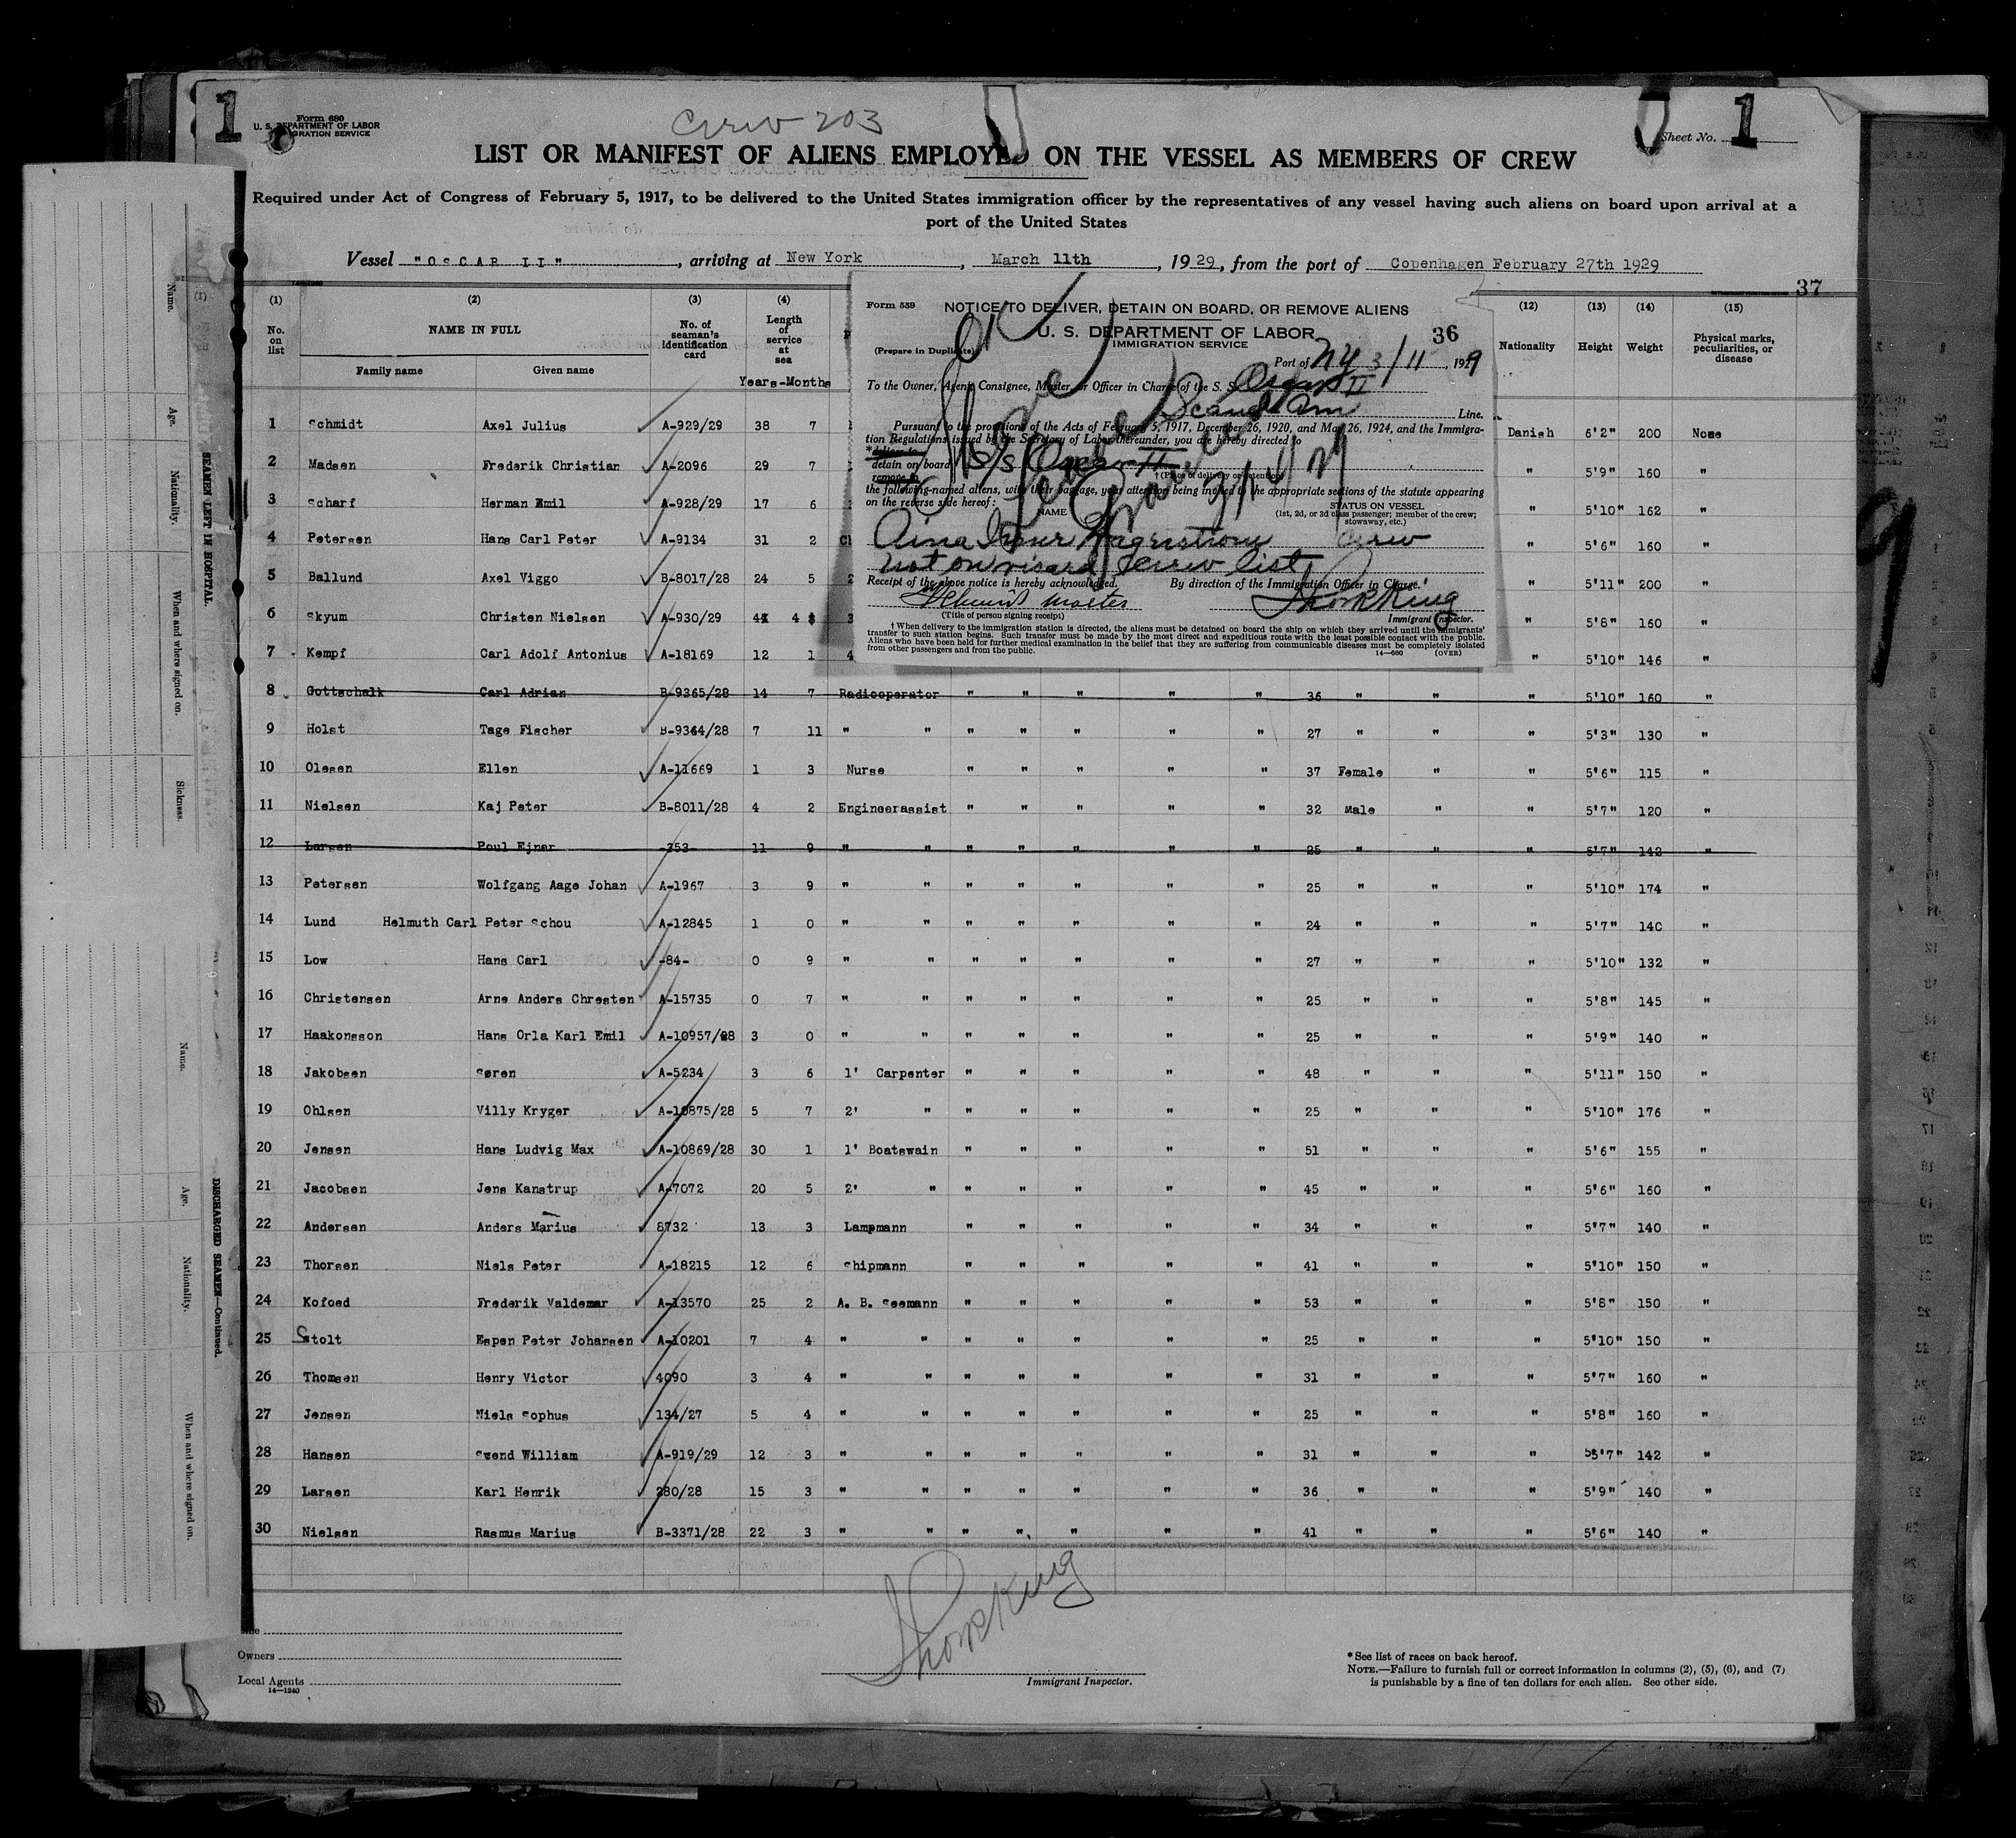 1
Form 680
U. S. DEPARTMENT OF LABOR
IMMIGRATION SERVICE
Crew 203
Sheet No. 1
LIST OR MANIFEST OF ALIENS EMPLOYED ON THE VESSEL AS MEMBERS OF CREW
Required under Act of Congress of February 5, 1917, to be delivered to the United States immigration officer by the representatives of any vessel having such aliens on board upon arrival at a
port of the United States
Vessel "OSCAR II", arriving at New York, March 11th, 1929, from the port of Copenhagen February 27th 1929
37
(1) (2) (3) (4) (12) (13) (14) (15)
No. on list NAME IN FULL No. of seaman's identification card Length of service at sea Nationality Height Weight Physical marks, peculiarities, or disease
Family name Given name Years-Months
Form 559 NOTICE TO DELIVER, DETAIN ON BOARD, OR REMOVE ALIENS
U. S. DEPARTMENT OF LABOR 36
IMMIGRATION SERVICE
(Prepare in Duplicate) OK
Port of NY 3/11, 1929
To the Owner, Agent, Consignee, Master, or Officer in Charge of the S. S. Oscar II
Scand Am Line.
Pursuant to the provisions of the Acts of February 5, 1917, December 26, 1920, and May 26, 1924, and the Immigra-
tion Regulations issued by the Secretary of Labor thereunder, you are hereby directed to
*deliver to
detain on board S/S Oscar II
remove to
†(Place of delivery or detention)
the following-named aliens, with their baggage, your attention being invited to the appropriate sections of the statute appearing
on the reverse side hereof:
NAME STATUS ON VESSEL
(1st, 2d, or 3d class passenger; member of the crew;
stowaway, etc.)
Aina Hagerstrom Crew
not on visaed crew list
Receipt of the above notice is hereby acknowledged. By direction of the Immigration Officer in Charge.
Schmidt Master Thom King
(Title of person signing receipt) Immigrant Inspector.
† When delivery to the immigration station is directed, the aliens must be detained on board the ship on which they arrived until the immigrants'
transfer to such station begins. Such transfer must be made by the most direct and expeditious route with the least possible contact with the public.
Aliens who have been held for further medical examination in the belief that they are suffering from communicable diseases must be completely isolated
from other passengers and from the public. 14—660 (OVER)
1 Schmidt Axel Julius A-929/29 38 7 Danish 6'2" 200 None
2 Madsen Frederik Christian A-2096 29 7 " 5'9" 160 "
3 Scharf Herman Emil A-928/29 17 6 " 5'10" 162 "
4 Petersen Hans Carl Peter A-9134 31 2 " 5'6" 160 "
5 Ballund Axel Viggo B-8017/28 24 5 " 5'11" 200 "
6 Skyum Christen Nielsen A-930/29 4 " 5'8" 160 "
7 Kempf Carl Adolf Antonius A-18169 12 1 " 5'10" 146 "
8 Gottschalk Carl Adrian B-9365/28 14 7 Radiooperator " " " " " 36 " " " 5'10" 160 "
9 Holst Tage Fischer B-9364/28 7 11 " " " " " " " 27 " " " 5'3" 130 "
10 Olesen Ellen A-11669 1 3 Nurse " " " " " 37 Female " " 5'6" 115 "
11 Nielsen Kaj Peter B-8011/28 4 2 Engineerassist " " " " " 32 Male " " 5'7" 120 "
12 Larsen Poul Ejner -353- 11 9 " " " " " " " 25 " " " 5'7" 142 "
13 Petersen Wolfgang Aage Johan A-1967 3 9 " " " " " " " 25 " " " 5'10" 174 "
14 Lund Helmuth Carl Peter Schou A-12845 1 0 " " " " " " " 24 " " " 5'7" 140 "
15 Low Hans Carl -84- 0 9 " " " " " " " 27 " " " 5'10" 132 "
16 Christensen Arne Anders Chresten A-15735 0 7 " " " " " " " 25 " " " 5'8" 145 "
17 Haakonsson Hans Orla Karl Emil A-10957/28 3 0 " " " " " " " 25 " " " 5'9" 140 "
18 Jakobsen Søren A-5234 3 6 1' Carpenter " " " " " 48 " " " 5'11" 150 "
19 Ohlsen Villy Kryger A-10875/28 5 7 2' " " " " " " 25 " " " 5'10" 176 "
20 Jensen Hans Ludvig Max A-10869/28 30 1 1' Boatswain " " " " " 51 " " " 5'6" 155 "
21 Jacobsen Jens Kanstrup A-7072 20 5 2' " " " " " " 45 " " " 5'6" 160 "
22 Andersen Anders Marius 8732 13 3 Lampmann " " " " " 34 " " " 5'7" 140 "
23 Thorsen Niels Peter A-18215 12 6 Shipmann " " " " " 41 " " " 5'10" 150 "
24 Kofoed Frederik Valdemar A-13570 25 2 A. B. Seemann " " " " " 53 " " " 5'8" 150 "
25 Stolt Espen Peter Johansen A-10201 7 4 " " " " " " " 25 " " " 5'10" 150 "
26 Thomsen Henry Victor 4090 3 4 " " " " " " " 31 " " " 5'7" 160 "
27 Jensen Niels Sophus 134/27 5 4 " " " " " " " 25 " " " 5'8" 160 "
28 Hansen Svend William A-919/29 12 3 " " " " " " " 31 " " " 5'7" 142 "
29 Larsen Karl Henrik 280/28 15 3 " " " " " " " 36 " " " 5'9" 140 "
30 Nielsen Rasmus Marius B-3371/28 22 3 " " " " " " " 41 " " " 5'6" 140 "
Thom King
Immigrant Inspector.
Owners
Local Agents
14—1240
*See list of races on back hereof.
NOTE.—Failure to furnish full or correct information in columns (2), (5), (6), and (7)
is punishable by a fine of ten dollars for each alien. See other side.
SEAMEN LEFT IN HOSPITAL.
Name. Age. Nationality. When and where signed on. Sickness.
DISCHARGED SEAMEN—Continued.
Name. Age. Nationality. When and where signed on.
9